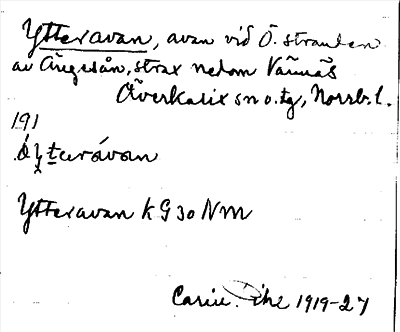 Ytteravan, avan vid Ö. stranden
av Ängesån, strax nedom Vännäs
Överkalix sn o. tg, Norrb. l.
191
Ytteravan KG 30 NM
1919-27